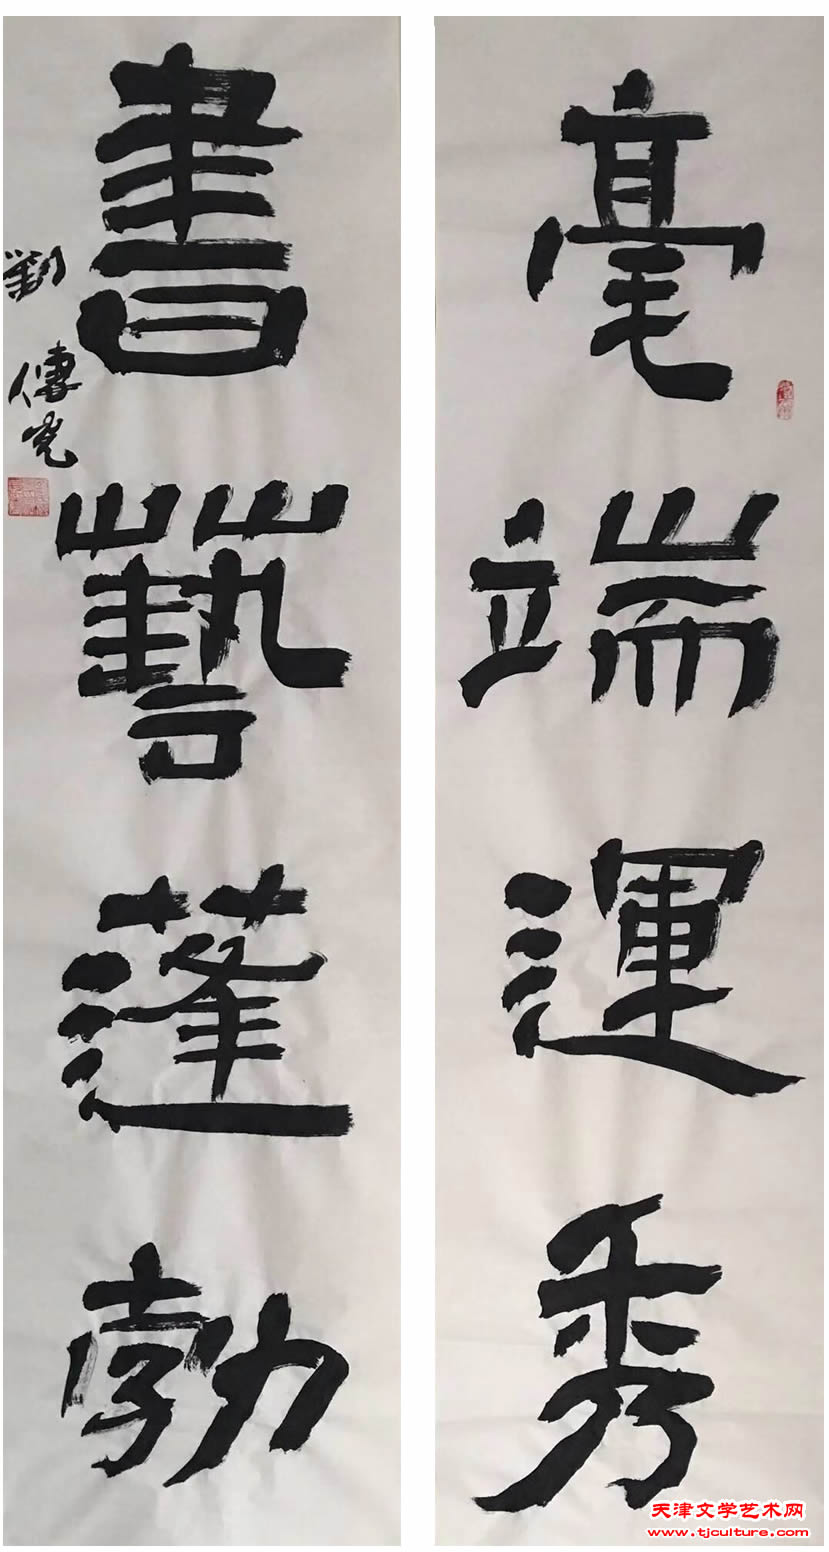 毫端運秀
書藝蓬勃
劉傳堯
天津文学艺术网
www.tjculture.com